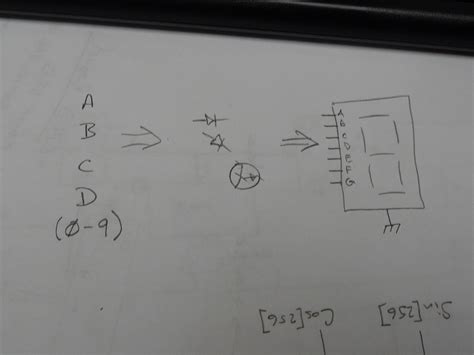 A
B
C
D
(0-9)
A
B
C
D
E
F
G
Sin[256]
Cos[256]